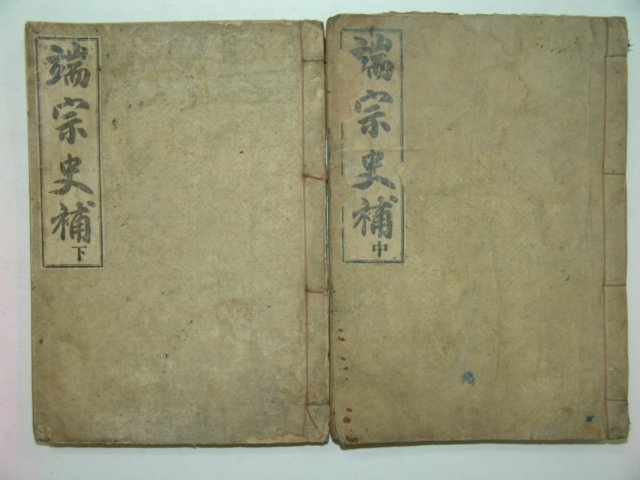 端宗史補下
端宗史補中